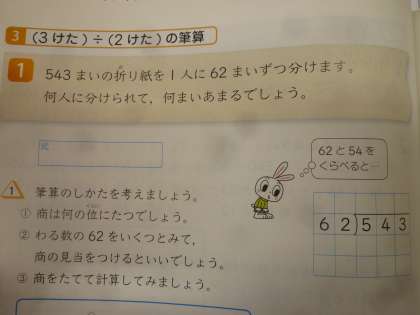 3 (3けた)÷(2けた)の筆算
1 543まいの折り紙を1人に62まいずつ分けます。
何人に分けられて，何まいあまるでしょう。
式
62と54を
くらべると…
1 筆算のしかたを考えましょう。
① 商は何の位にたつでしょう。
② わる数の62をいくつとみて，
商の見当をつけるといいでしょう。
③ 商をたてて計算してみましょう。
62)543